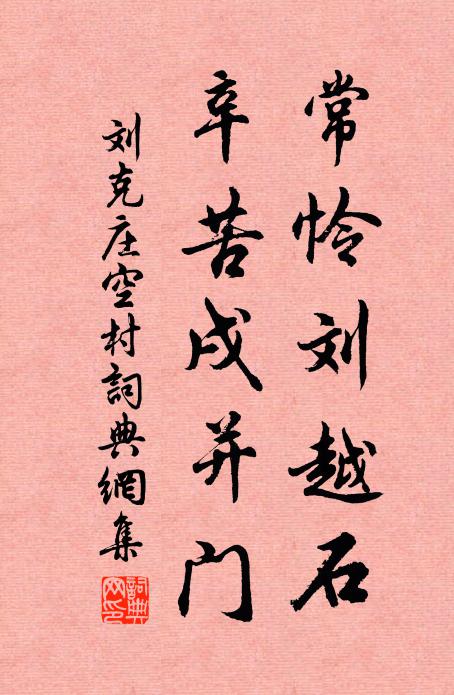 常怜刘越石
辛苦戍并门
刘克庄空村詞典網集
詞典
网印